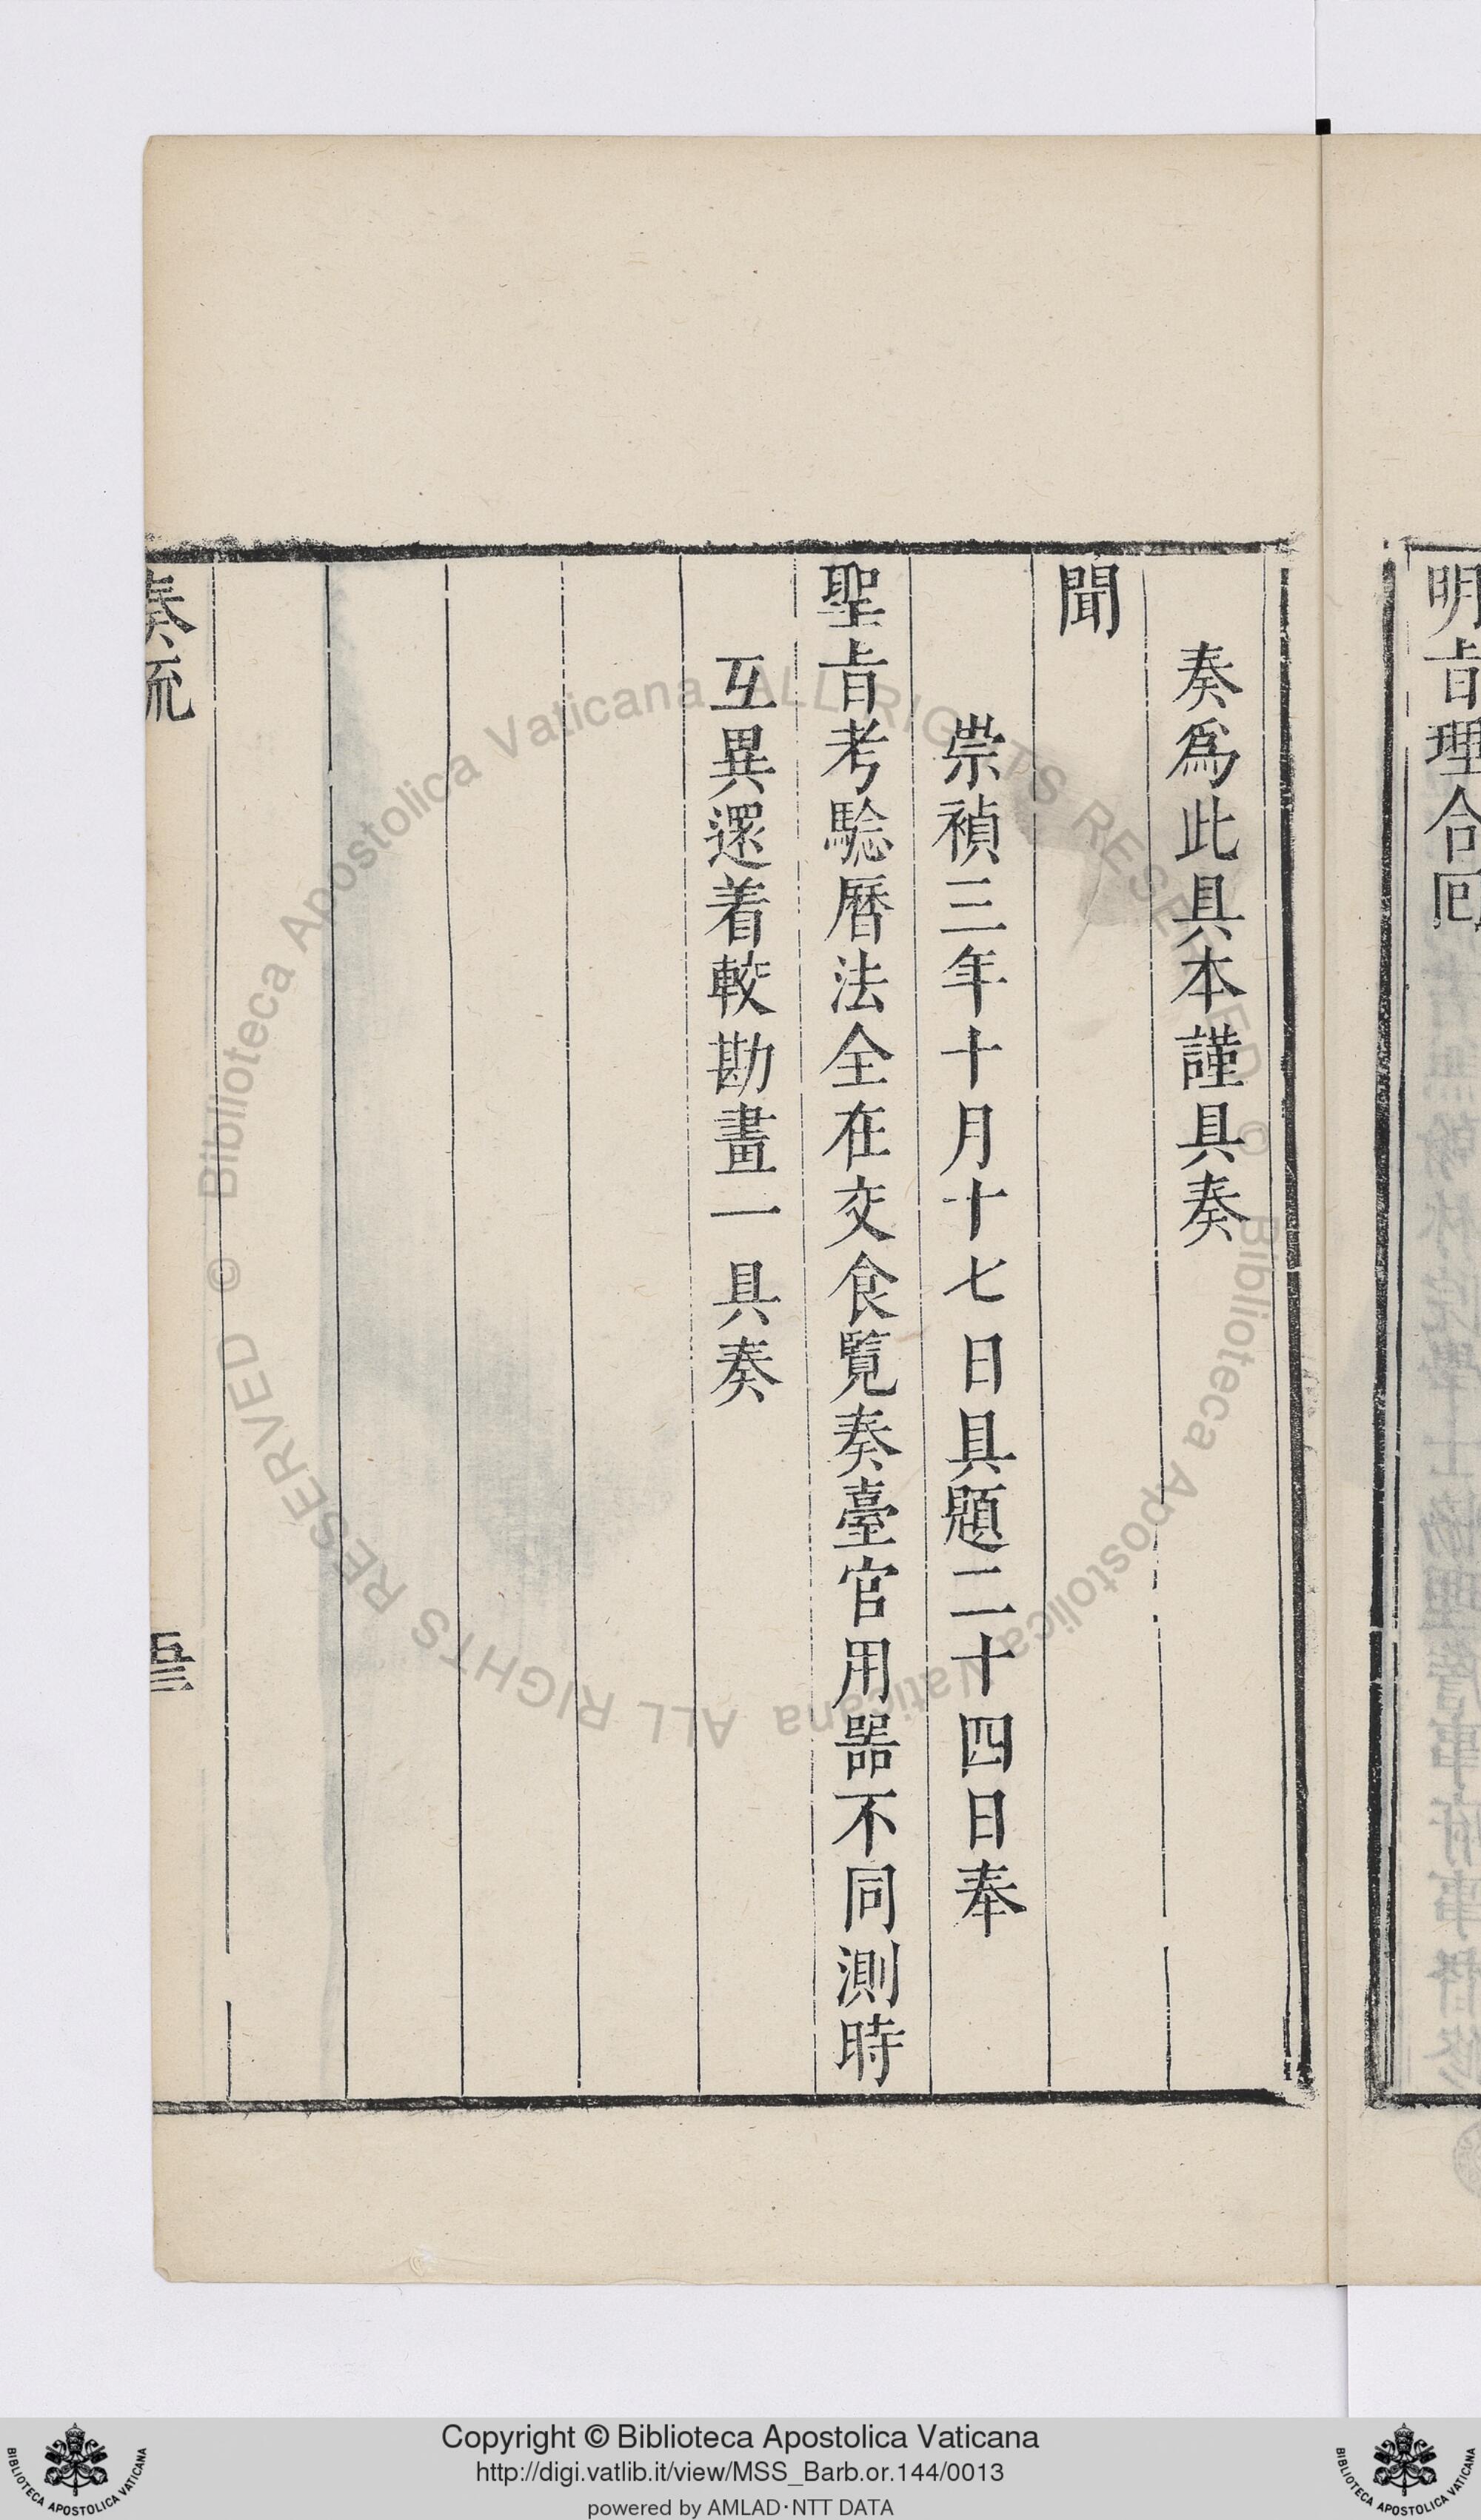 明旨理合囘
奏爲此具本謹具奏
聞
崇禎三年十月十七日具題二十四日奉
聖旨考驗曆法全在交食覽奏臺官用器不同測時
互異還着較勘畫一具奏
奏疏
Copyright © Biblioteca Apostolica Vaticana
http://digi.vatlib.it/view/MSS_Barb.or.144/0013
powered by AMLAD·NTT DATA
BIBLIOTECA APOSTOLICA VATICANA
BIBLIOTECA APOSTOLICA VATICANA
© Biblioteca Apostolica Vaticana ALL RIGHTS RESERVED © Biblioteca Apostolica Vaticana ALL RIGHTS RESERVED